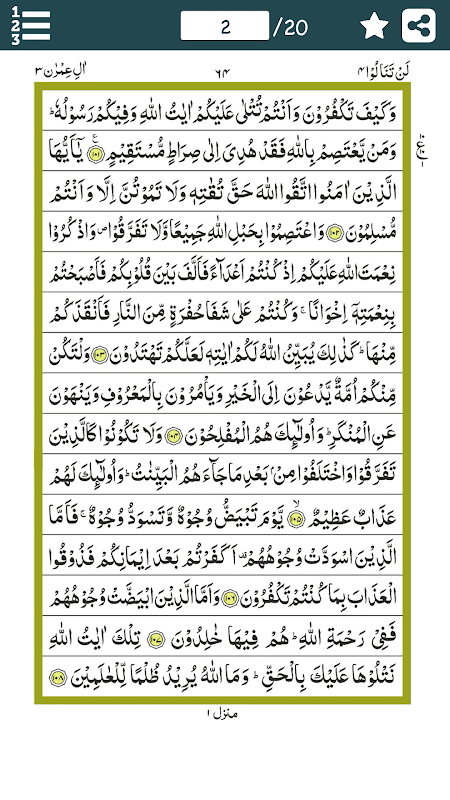 1
2
3
2 /20
لَنْ تَنَالُوْا ۴ ۶۴ اٰلِ عِمْرٰن ۳
وَكَيْفَ تَكْفُرُوْنَ وَاَنْتُمْ تُتْلٰى عَلَيْكُمْ اٰيٰتُ اللّٰهِ وَفِيْكُمْ رَسُوْلُهٗ ؕ
وَمَنْ يَّعْتَصِمْ بِاللّٰهِ فَقَدْ هُدِىَ اِلٰى صِرَاطٍ مُّسْتَقِيْمٍ ﴿۱۰۱﴾ يٰۤاَيُّهَا
الَّذِيْنَ اٰمَنُوا اتَّقُوا اللّٰهَ حَقَّ تُقٰتِهٖ وَلَا تَمُوْتُنَّ اِلَّا وَاَنْتُمْ
مُّسْلِمُوْنَ ﴿۱۰۲﴾ وَاعْتَصِمُوْا بِحَبْلِ اللّٰهِ جَمِيْعًا وَّلَا تَفَرَّقُوْا ۪ وَاذْكُرُوْا
نِعْمَتَ اللّٰهِ عَلَيْكُمْ اِذْ كُنْتُمْ اَعْدَآءً فَاَلَّفَ بَيْنَ قُلُوْبِكُمْ فَاَصْبَحْتُمْ
بِنِعْمَتِهٖۤ اِخْوَانًا ۚ وَكُنْتُمْ عَلٰى شَفَا حُفْرَةٍ مِّنَ النَّارِ فَاَنْقَذَكُمْ
مِّنْهَا ؕ كَذٰلِكَ يُبَيِّنُ اللّٰهُ لَكُمْ اٰيٰتِهٖ لَعَلَّكُمْ تَهْتَدُوْنَ ﴿۱۰۳﴾ وَلْتَكُنْ
مِّنْكُمْ اُمَّةٌ يَّدْعُوْنَ اِلَى الْخَيْرِ وَيَاْمُرُوْنَ بِالْمَعْرُوْفِ وَيَنْهَوْنَ
عَنِ الْمُنْكَرِ ؕ وَاُولٰٓئِكَ هُمُ الْمُفْلِحُوْنَ ﴿۱۰۴﴾ وَلَا تَكُوْنُوْا كَالَّذِيْنَ
تَفَرَّقُوْا وَاخْتَلَفُوْا مِنْۢ بَعْدِ مَا جَآءَهُمُ الْبَيِّنٰتُ ؕ وَاُولٰٓئِكَ لَهُمْ
عَذَابٌ عَظِيْمٌ ﴿۱۰۵﴾ ۙ يَّوْمَ تَبْيَضُّ وُجُوْهٌ وَّتَسْوَدُّ وُجُوْهٌ ۚ فَاَمَّا
الَّذِيْنَ اسْوَدَّتْ وُجُوْهُهُمْ ۟ اَكَفَرْتُمْ بَعْدَ اِيْمَانِكُمْ فَذُوْقُوا
الْعَذَابَ بِمَا كُنْتُمْ تَكْفُرُوْنَ ﴿۱۰۶﴾ وَاَمَّا الَّذِيْنَ ابْيَضَّتْ وُجُوْهُهُمْ
فَفِىْ رَحْمَةِ اللّٰهِ ؕ هُمْ فِيْهَا خٰلِدُوْنَ ﴿۱۰۷﴾ تِلْكَ اٰيٰتُ اللّٰهِ
نَتْلُوْهَا عَلَيْكَ بِالْحَقِّ ؕ وَمَا اللّٰهُ يُرِيْدُ ظُلْمًا لِّلْعٰلَمِيْنَ ﴿۱۰۸﴾
منزل ۱